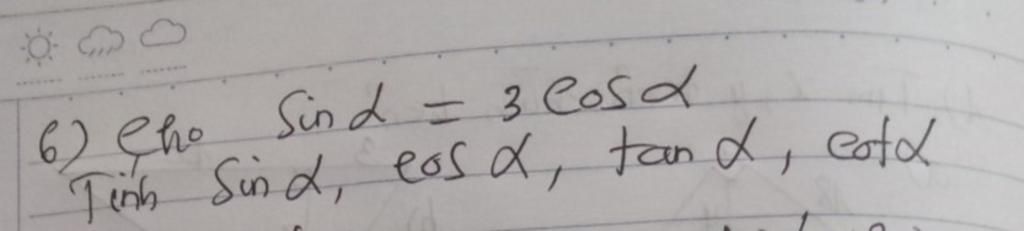 6) Cho Sin α = 3 Cos α
Tính Sin α, cos α, tan α, cot α